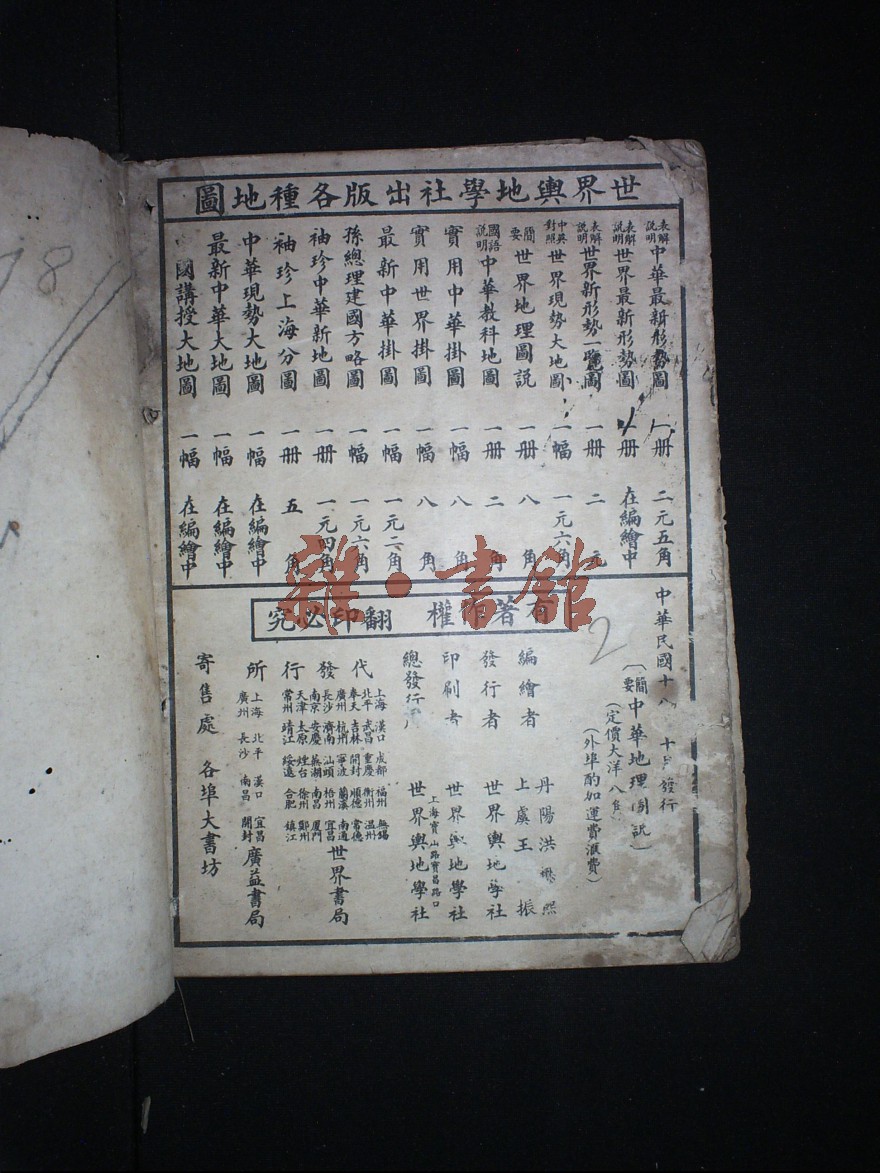 世界輿地學社出版各種地圖
表解說明中華最新形勢圖 一册 二元五角
表解說明世界最新形勢圖 一册 在編繪中
表解說明世界新形勢一覽圖 一册 二元
中英對照世界現勢大地圖 一幅 一元六角
簡要世界地理圖説 一册 八角
國語說明中華教科地圖 一册 二角
實用中華掛圖 一幅 八角
實用世界掛圖 一幅 八角
最新中華掛圖 一幅 一元二角
孫總理建國方略圖 一幅 一元六角
袖珍中華新地圖 一册 一元四角
袖珍上海分圖 一册 五角
中華現勢大地圖 一幅 在編繪中
最新中華大地圖 一幅 在編繪中
國講授大地圖 一幅 在編繪中
有著作權 翻印必究
中華民國十八 十月發行
（簡要中華地理圖説）
（定價大洋八角）
（外埠酌加運費滙費）
編繪者 丹陽洪懋熙
上虞王振
發行者 世界輿地學社
印刷者 世界輿地學社
總發行所 上海寶山路寶昌路口 世界輿地學社
代發行所
上海 漢口 成都 福州 無錫
北平 武昌 重慶 衢州 溫州
奉天 吉林 開封 順德 常德
廣州 杭州 寧波 蘭溪 南通
長沙 濟南 汕頭 梧州 宜昌
南京 安慶 蕪湖 南昌 厦門
天津 太原 煙台 徐州 鄭州
常州 靖江 綏遠 合肥 鎮江
世界書局
上海 北平 漢口 宜昌
廣州 長沙 南昌 開封
廣益書局
寄售處 各埠大書坊
雜·書館
2
18